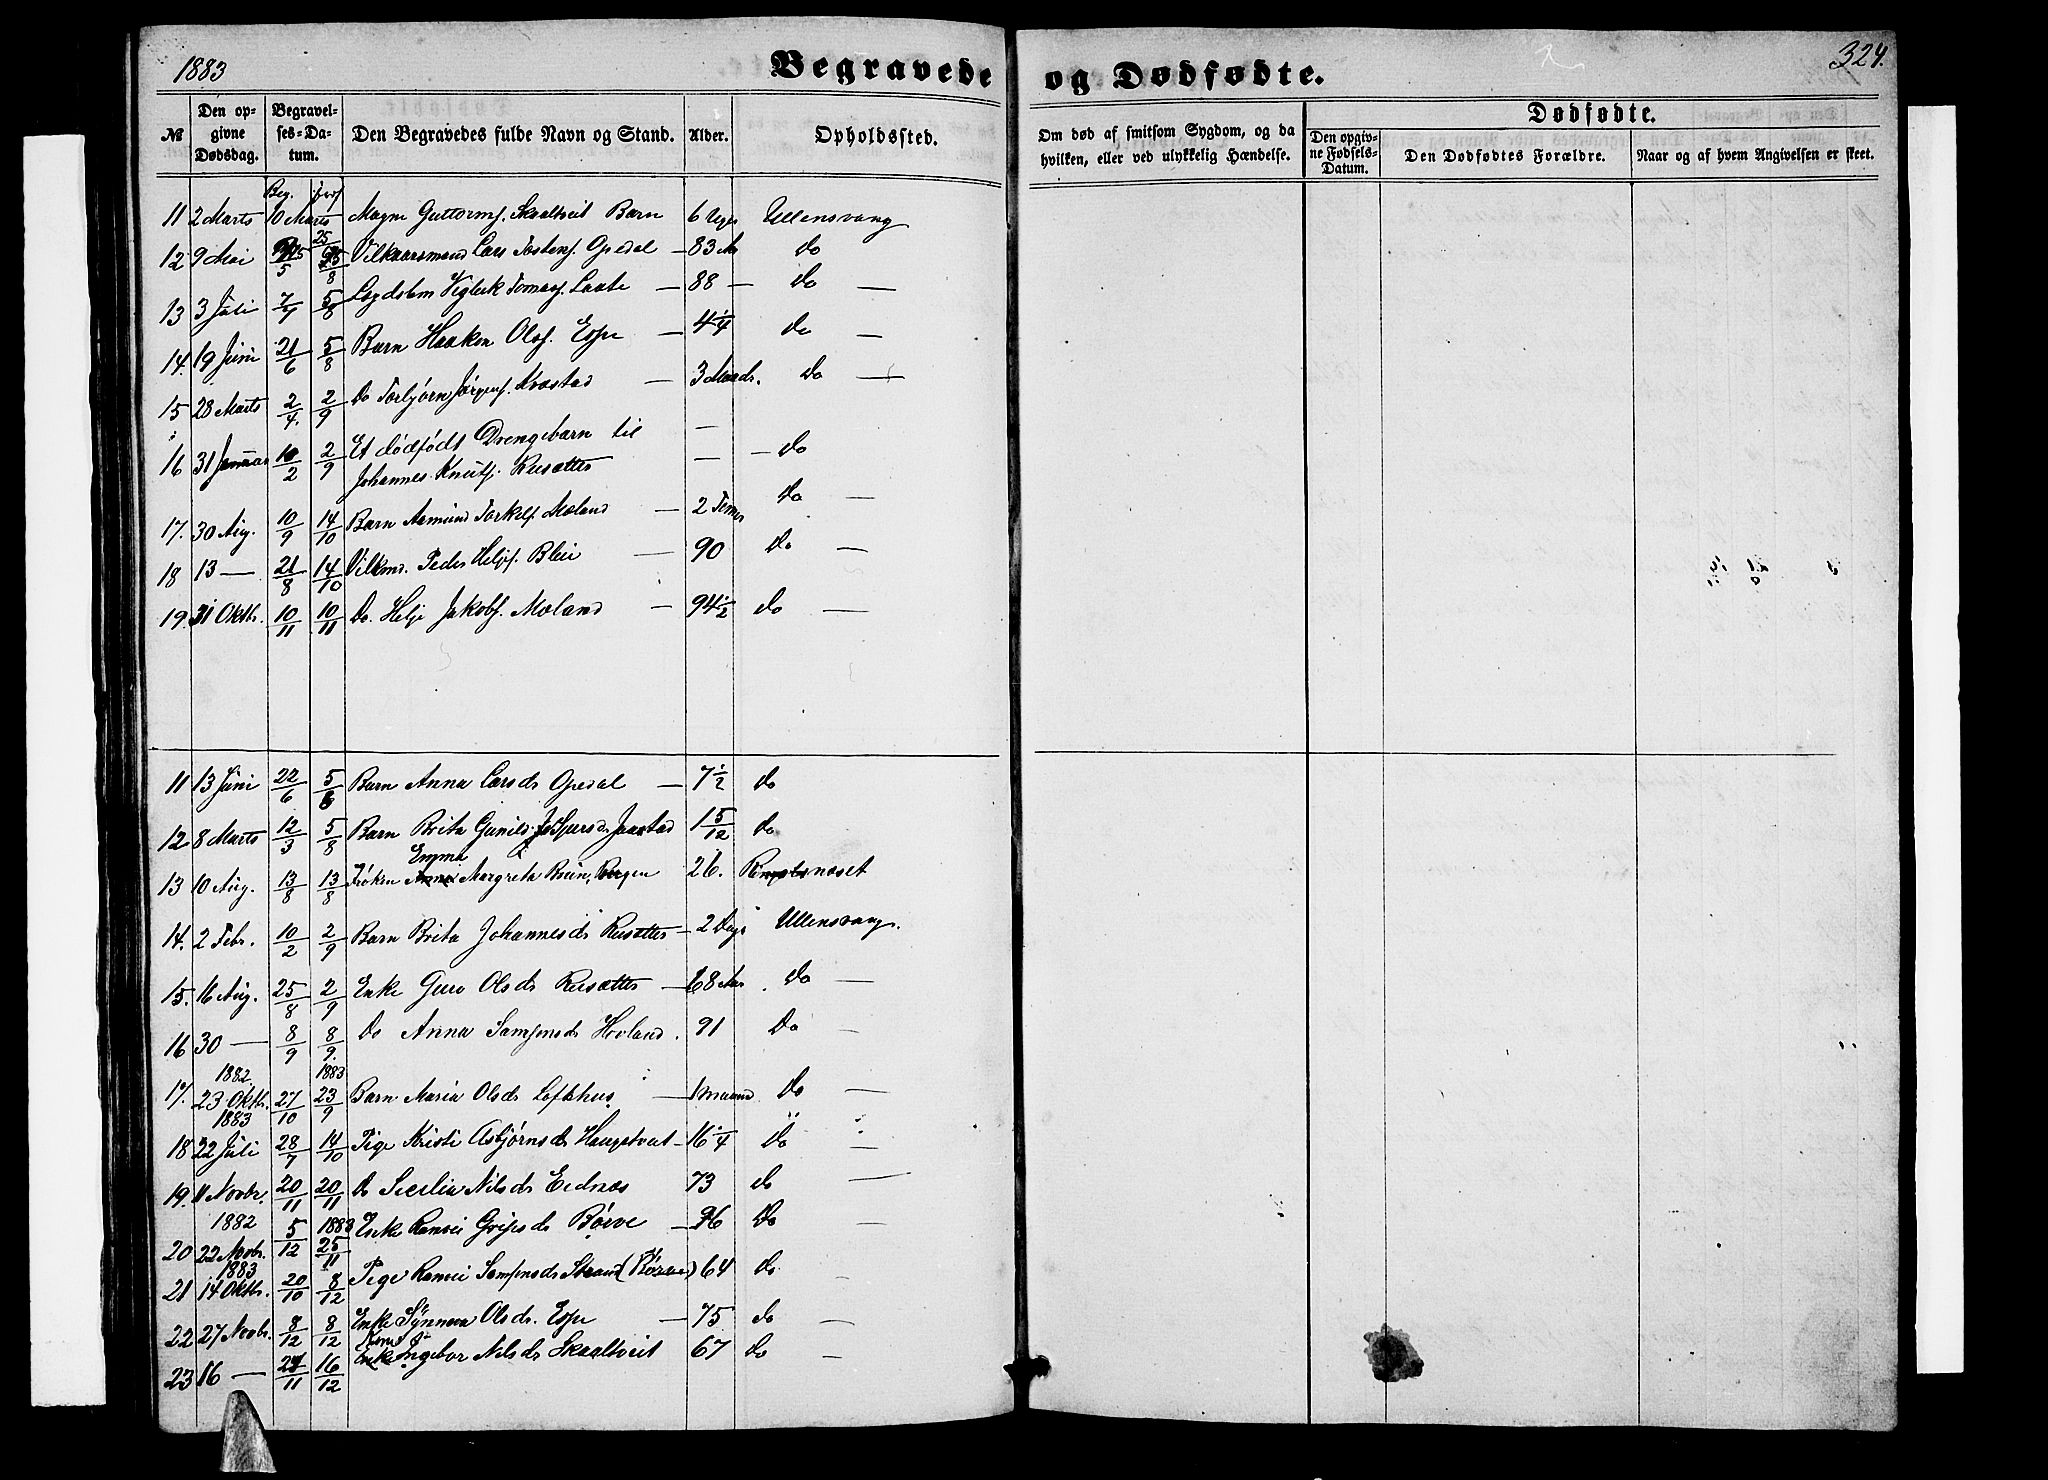 1883
Begravede og Dødfødte.
324.
№ Den opgivne Dødsdag. Begravelses-Datum. Den Begravedes fulde Navn og Stand. Alder. Opholdssted. Om død af smitsom Sygdom, og da hvilken, eller ved ulykkelig Hændelse. Dødfødte. Den opgivne Fødsels-Datum. Den Dødfødtes Forældre. Naar og af hvem Angivelsen er skeet.
Beg.
11 2 Marts 10 Marts Magne Guttorms. Skaaltveit Barn 6 Uger Ullensvang
12 9 Mai Vilkaarsmand Lars Tostens. Opedal — 83 Aar do
13 3 Juli 7/7 5/8 Lægdslem Viglek Tomas. Laate — 88 — do —
14. 19 Juni 21/6 5/8 Barn Haaken Ols. Espe — 4 1/4 do —
15 28 Marts 2/4. 2/9 do Torbjørn Jørgens. Kvæstad — 3 Maadr. do —
16 31 Januar 10/2 2/9 Et dødfødt Drengebarn til — do
Johannes Knuts. Reisætter
17. 30 Aug. 10/9 14/10 Barn Aamund Torkels. Moland — 2 Timer do —
18 13 — 21/8 14/10 Vilkmd. Peder Heljes. Bleie — 90 do —
19. 31 Oktbr. 10/11 10/11 do. Helje Jakobs. Moland — 94 1/2 do —
11 13 Juni 22/6 5/8 Barn Anna Larsdr Opedal — 7 1/2 do
12 8 Marts 12/3 5/8 Barn Brita Gunild Jespersdr Jaastad 1 5/12 do
Emma
13 10 Aug. 13/8 13/8 Frøken Margreta Bergen 26. Ringesnæset
14. 2 Febr. 10/2 2/9 Barn Brita Johannesdr Reisætter — 2 Dage Ullensvang.
15. 16 Aug. 25/8 2/9 Enke Guro Olsdr Reisætter — 68 Aar do —
16 30 — 8/9 8/9. do Anna Samsonsdr Hovland. 91 do —
1882. 1883
17. 23 Oktbr. 27/10 23/9 Barn Maria Olsdr Lofthus — 1 maaned do —
1883
18 22 Juli 28/7 14/10 Pige Kristi Asbjørnsdr Haugstveit — 16 1/4 do —
19. 11 Novbr. 20/11 20/11 do Sicilia Nilsdr Eidnæs 73 do —
1882 1883
20 22 Novbr. 5/12 25/11 Enke Ranvei Gripsdr Børve — 96 do —
1883
21 14 Oktbr. 20/10 8/12 Pige Ranvei Samsonsdr Strand (Børve) 64 do —
22 27 Novbr. 8/12 8/12 Enke Synneva Olsdr. Espe — 75 do —
Kone
23 16 — 24/11 16/12 Enke Ingebor Nilsdr Skaaltveit 67 do —